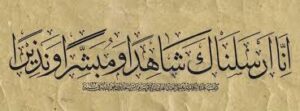 انا ارسلناك شاهدا ومبشرا ونذيرا